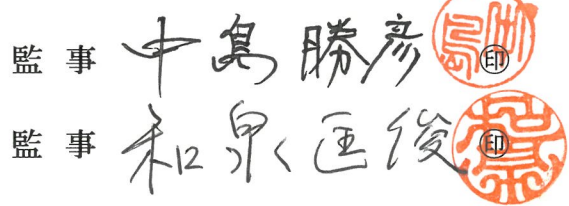 監事 中島勝彦 ㊞
監事 和泉匡俊 ㊞